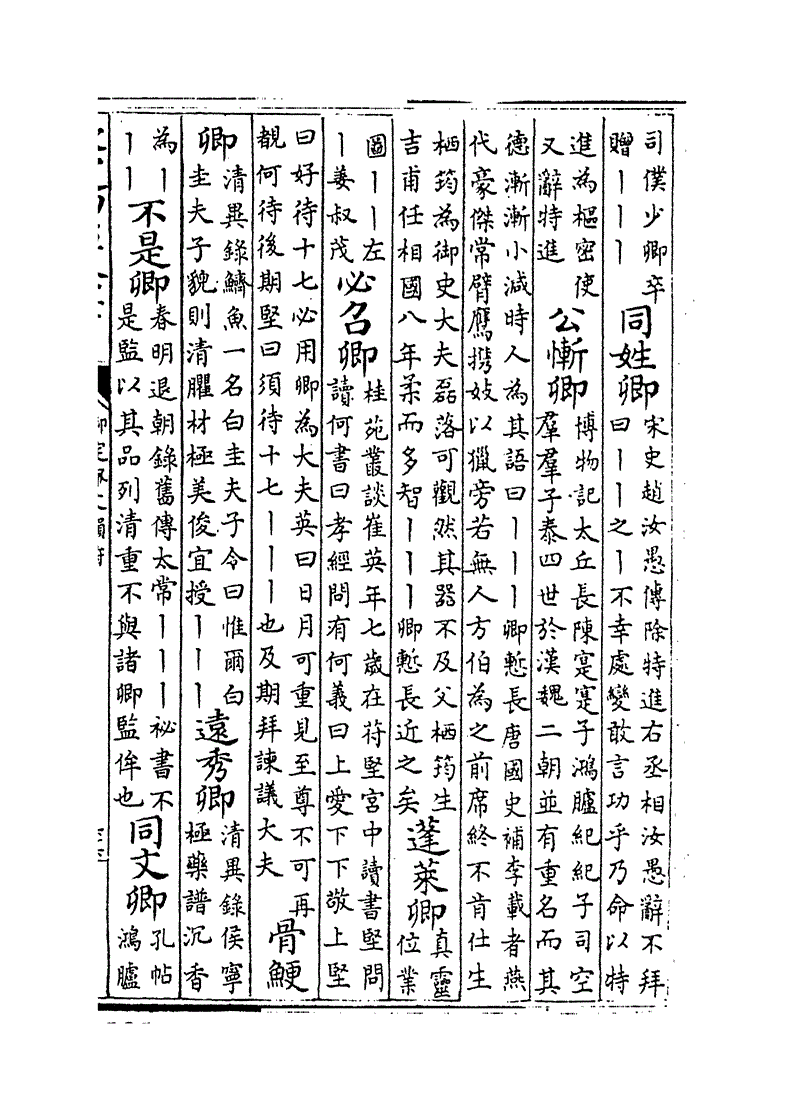 司僕少卿卒
贈丨丨丨
同姓卿
宋史趙汝愚傳除特進右丞相汝愚辭不拜
曰丨丨之丨不幸處變敢言功乎乃命以特
進為樞密使
又辭特進
公慚卿
博物記太丘長陳寔寔子鴻臚紀紀子司空
羣羣子泰四世於漢魏二朝並有重名而其
德漸漸小減時人為其語曰丨丨丨卿慙長唐國史補李載者燕
代豪傑常臂鷹携妓以獵旁若無人方伯為之前席終不肯仕生
栖筠為御史大夫磊落可觀然其器不及父栖筠生
吉甫任相國八年柔而多智丨丨丨卿慙長近之矣
蓬萊卿
真靈
位業
圖丨丨左
丨姜叔茂
必召卿
桂苑叢談崔英年七歲在苻堅宮中讀書堅問
讀何書曰孝經問有何義曰上愛下下敬上堅
曰好待十七必用卿為大夫英曰日月可重見至尊不可再
覩何待後期堅曰須待十七丨丨丨也及期拜諫議大夫
骨鯁
卿
清異錄鱭魚一名白圭夫子令曰惟爾白
圭夫子貌則清臞材極美俊宜授丨丨丨
遠秀卿
清異錄侯寧
極藥譜沉香
為丨
丨丨
不是卿
春明退朝錄舊傳太常丨丨丨祕書不
是監以其品列清重不與諸卿監侔也
同文卿
孔帖
鴻臚